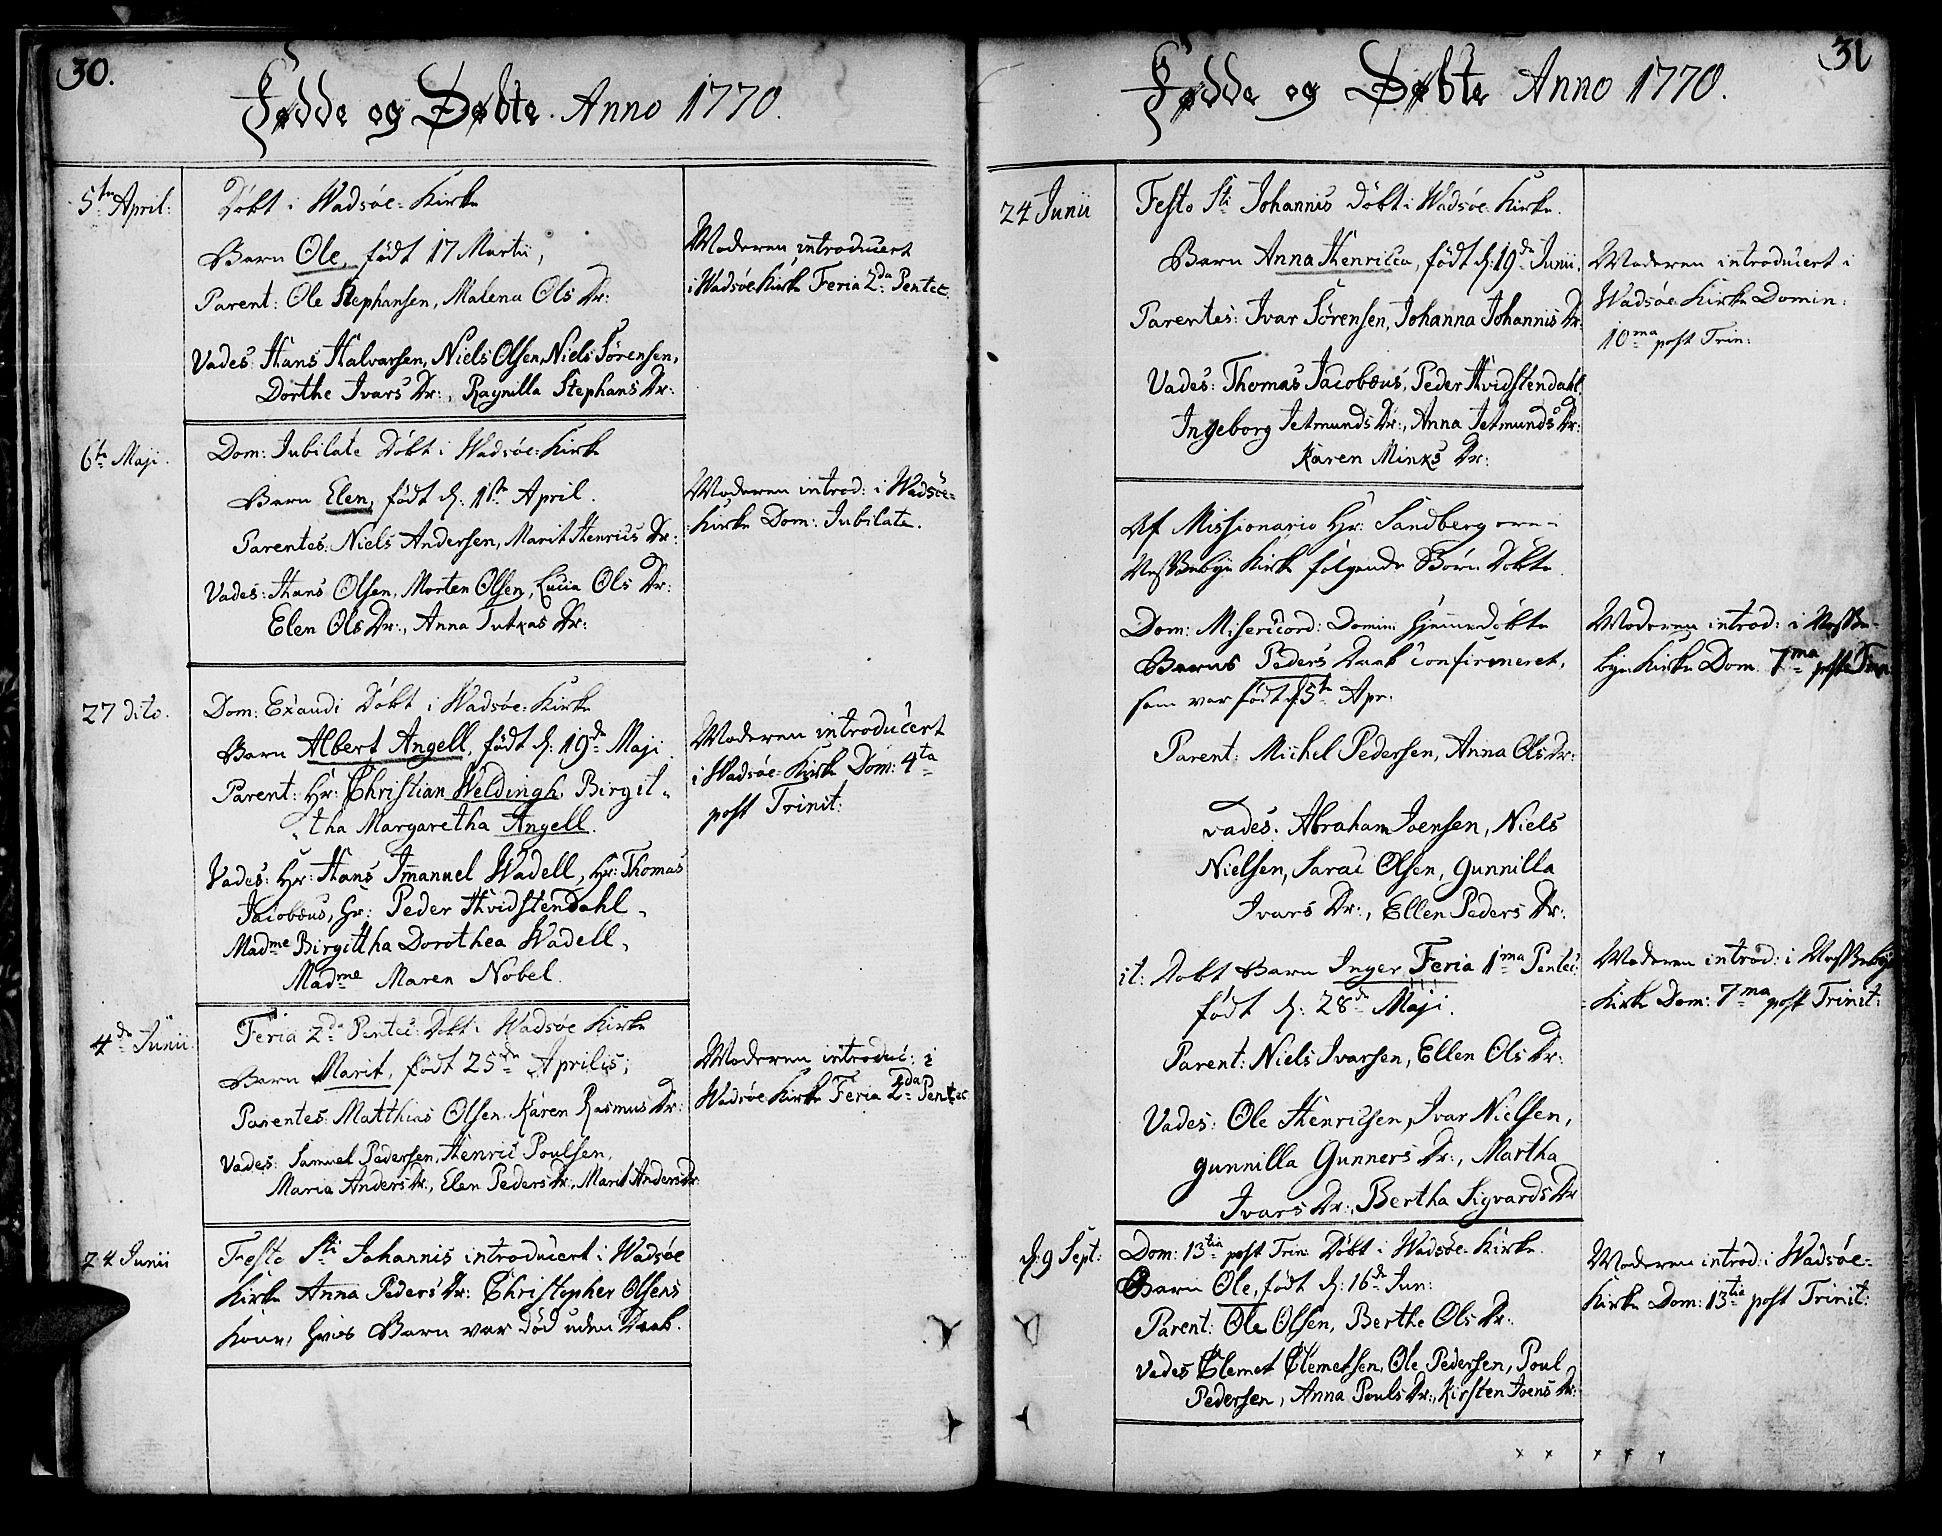 30.
Fødde og Døbte. Anno 1770.
5te April:
Döbt i Wadsöe-Kirke
Barn Ole, födt 17 Martii,
Parent: Ole Stephansen, Malena Ols Dr:
Vades: Hans Halvarsen, Niels Olsen, Niels Sörensen,
Dorthe Ivars Dr:, Ragnilla Stephans Dr:
Moderen introducert
i Wadsöe Kirke Feria 2da Pentec.
6te Maji.
Dom: Jubilate Döbt i Wadsöe-Kirke
Barn Elen, födt d: 1ste April.
Parentes: Niels Andersen, Marit Henrics Dr:
Vades: Hans Olsen, Morten Olsen, Lucia Ols Dr:
Elen Ols Dr:, Anna Tutkas Dr:
Moderen introd: i Wadsöe-
Kirke Dom: Jubilate.
27 dito.
Dom: Exaudi Döbt i Wadsöe-Kirke
Barn Albert Angell, födt d: 19de Maji
Parent: Hr: Christian Weldingh, Birgit-
tha Margaretha Angell.
Vades: Hr: Hans Imanuel Wadell, Hr: Thomas
Jacobæus, Hr: Peder Hvidstendahl,
Madme Birgittha Dorothea Wadell,
Madme Maren Nobel.
Moderen introducert
i Wadsöe-Kirke Dom: 4ta
post Trinit:
4de Junii.
Feria 2da Pentec: Döbt i Wadsöe Kirke
Barn Marit, födt 25de Aprilis;
Parentes: Matthias Olsen, Karen Rasmus Dr:
Vades: Samuel Pedersen, Henric Poulsen,
Maria Anders Dr:, Elen Peders Dr:, Marit Anders Dr:
Moderen introduc: i
Wadsöe Kirke Feria 2da Pentec
24 Junii
Festo Sti Johannis introducert i Wadsöe
Kirke Anna Peders Dr: Christopher Olsens
Kone, hvis Barn var död uden Daab.
31
Fødde og Døbte Anno 1770.
24 Junii
Festo Sti Johannis Döbt i Wadsöe-Kirke.
Barn Anna Henricca, födt d: 19de Junii.
Parentes: Ivar Sörensen, Johanna Johannis Dr:
Vades: Thomas Jacobæus, Peder Hvidstendahl
Ingeborg Jetmunds Dr:, Anna Jetmunds Dr:
Karen Minks Dr:
Moderen introducert i
Wadsöe Kirke Domin:
10ma post Trin:
Af Missionario Hr: Sandberg ere i
Næssebye Kirke fölgende Börn Döbte.
Dom: Misericord: Domin: hjemmedöbte
Barns Peders Daab confirmeret,
som var födt d: 5te Apr.
Parent: Michel Pedersen, Anna Ols Dr:
Vades: Abraham Joensen, Niels
Nielsen, Sarac Olsen, Gunnilla
Ivars Dr:, Ellen Peders Dr:
Moderen introd: i Næsse-
bye Kirke Dom. 7ma post Trin:
it: Döbt Barn Inger Feria 1ma Pentec:
födt d: 28de Maji.
Parent: Niels Ivarsen, Ellen Ols Dr:
Vades: Ole Henricsen, Ivar Nielsen,
Gunnilla Gunners Dr:, Martha
Ivars Dr:, Bertha Sigvards Dr
Moderen introd: i Næssebye
Kirke Dom: 7ma post Trinit:
d: 9 Sept:
Dom: 13tia post Trin: Döbt i Wadsöe-Kirke.
Barn Ole, födt d: 16de Jun:
Parent: Ole Olsen, Berthe Ols Dr:
Vades Clemet Clemetsen, Ole Pedersen, Poul
Pedersen, Anna Pouls Dr:, Kirsten Joens Dr:
Moderen introd: i Wadsöe-
Kirke Dom: 13tia post Trinit: